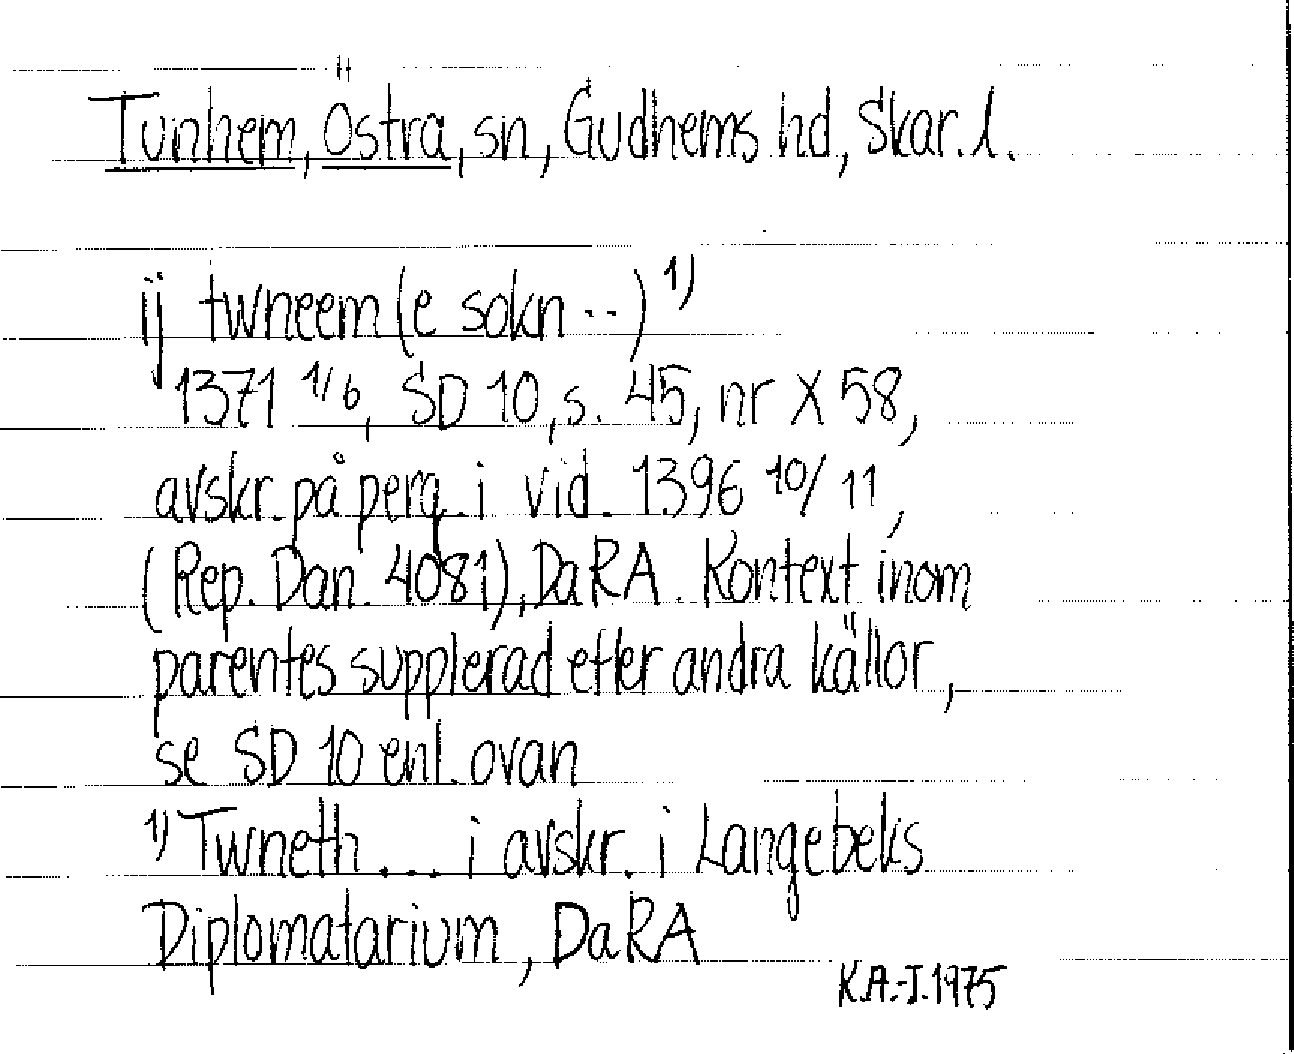 Tunhem, Östra, sn, Gudhems hd, Skar. l.
ij twneem(e sokn --) 1)
1371 1/6, SD 10, s. 45, nr X 58,
avskr. på perg. i vid. 1396 10/11,
(Rep. Dan. 4081), DaRA. Kontext inom
parentes supplerad efter andra källor,
se SD 10 enl. ovan
1) Twneth... i avskr. i Langebeks
Diplomatarium, DaRA
K.A.-I. 1975